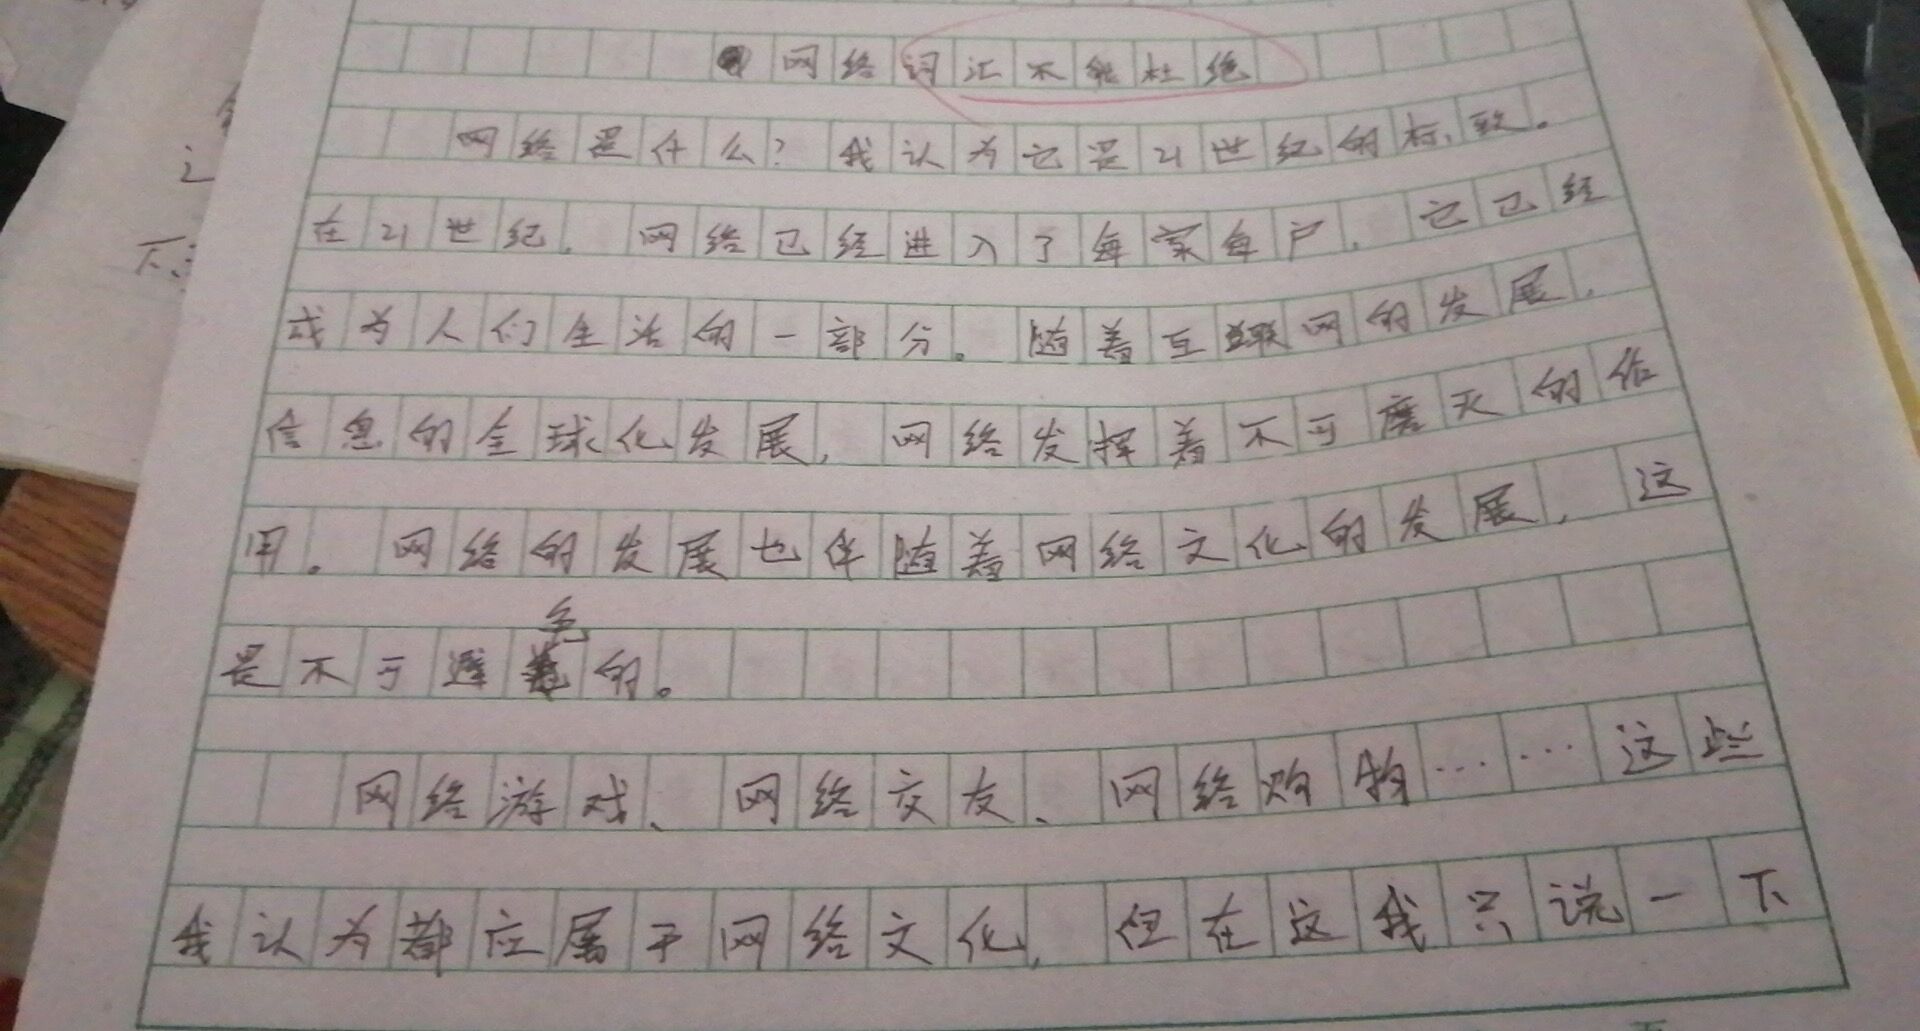 网络词汇不能杜绝
网络是什么？我认为它是21世纪的标致。
在21世纪，网络已经进入了每家每户，它已经
成为人们生活的一部分。随着互联网的发展，
信息的全球化发展，网络发挥着不可磨灭的作
用。网络的发展也伴随着网络文化的发展，这
是不可避免的。
网络游戏、网络交友、网络购物……这些
我认为都应属于网络文化，但在这我只说一下